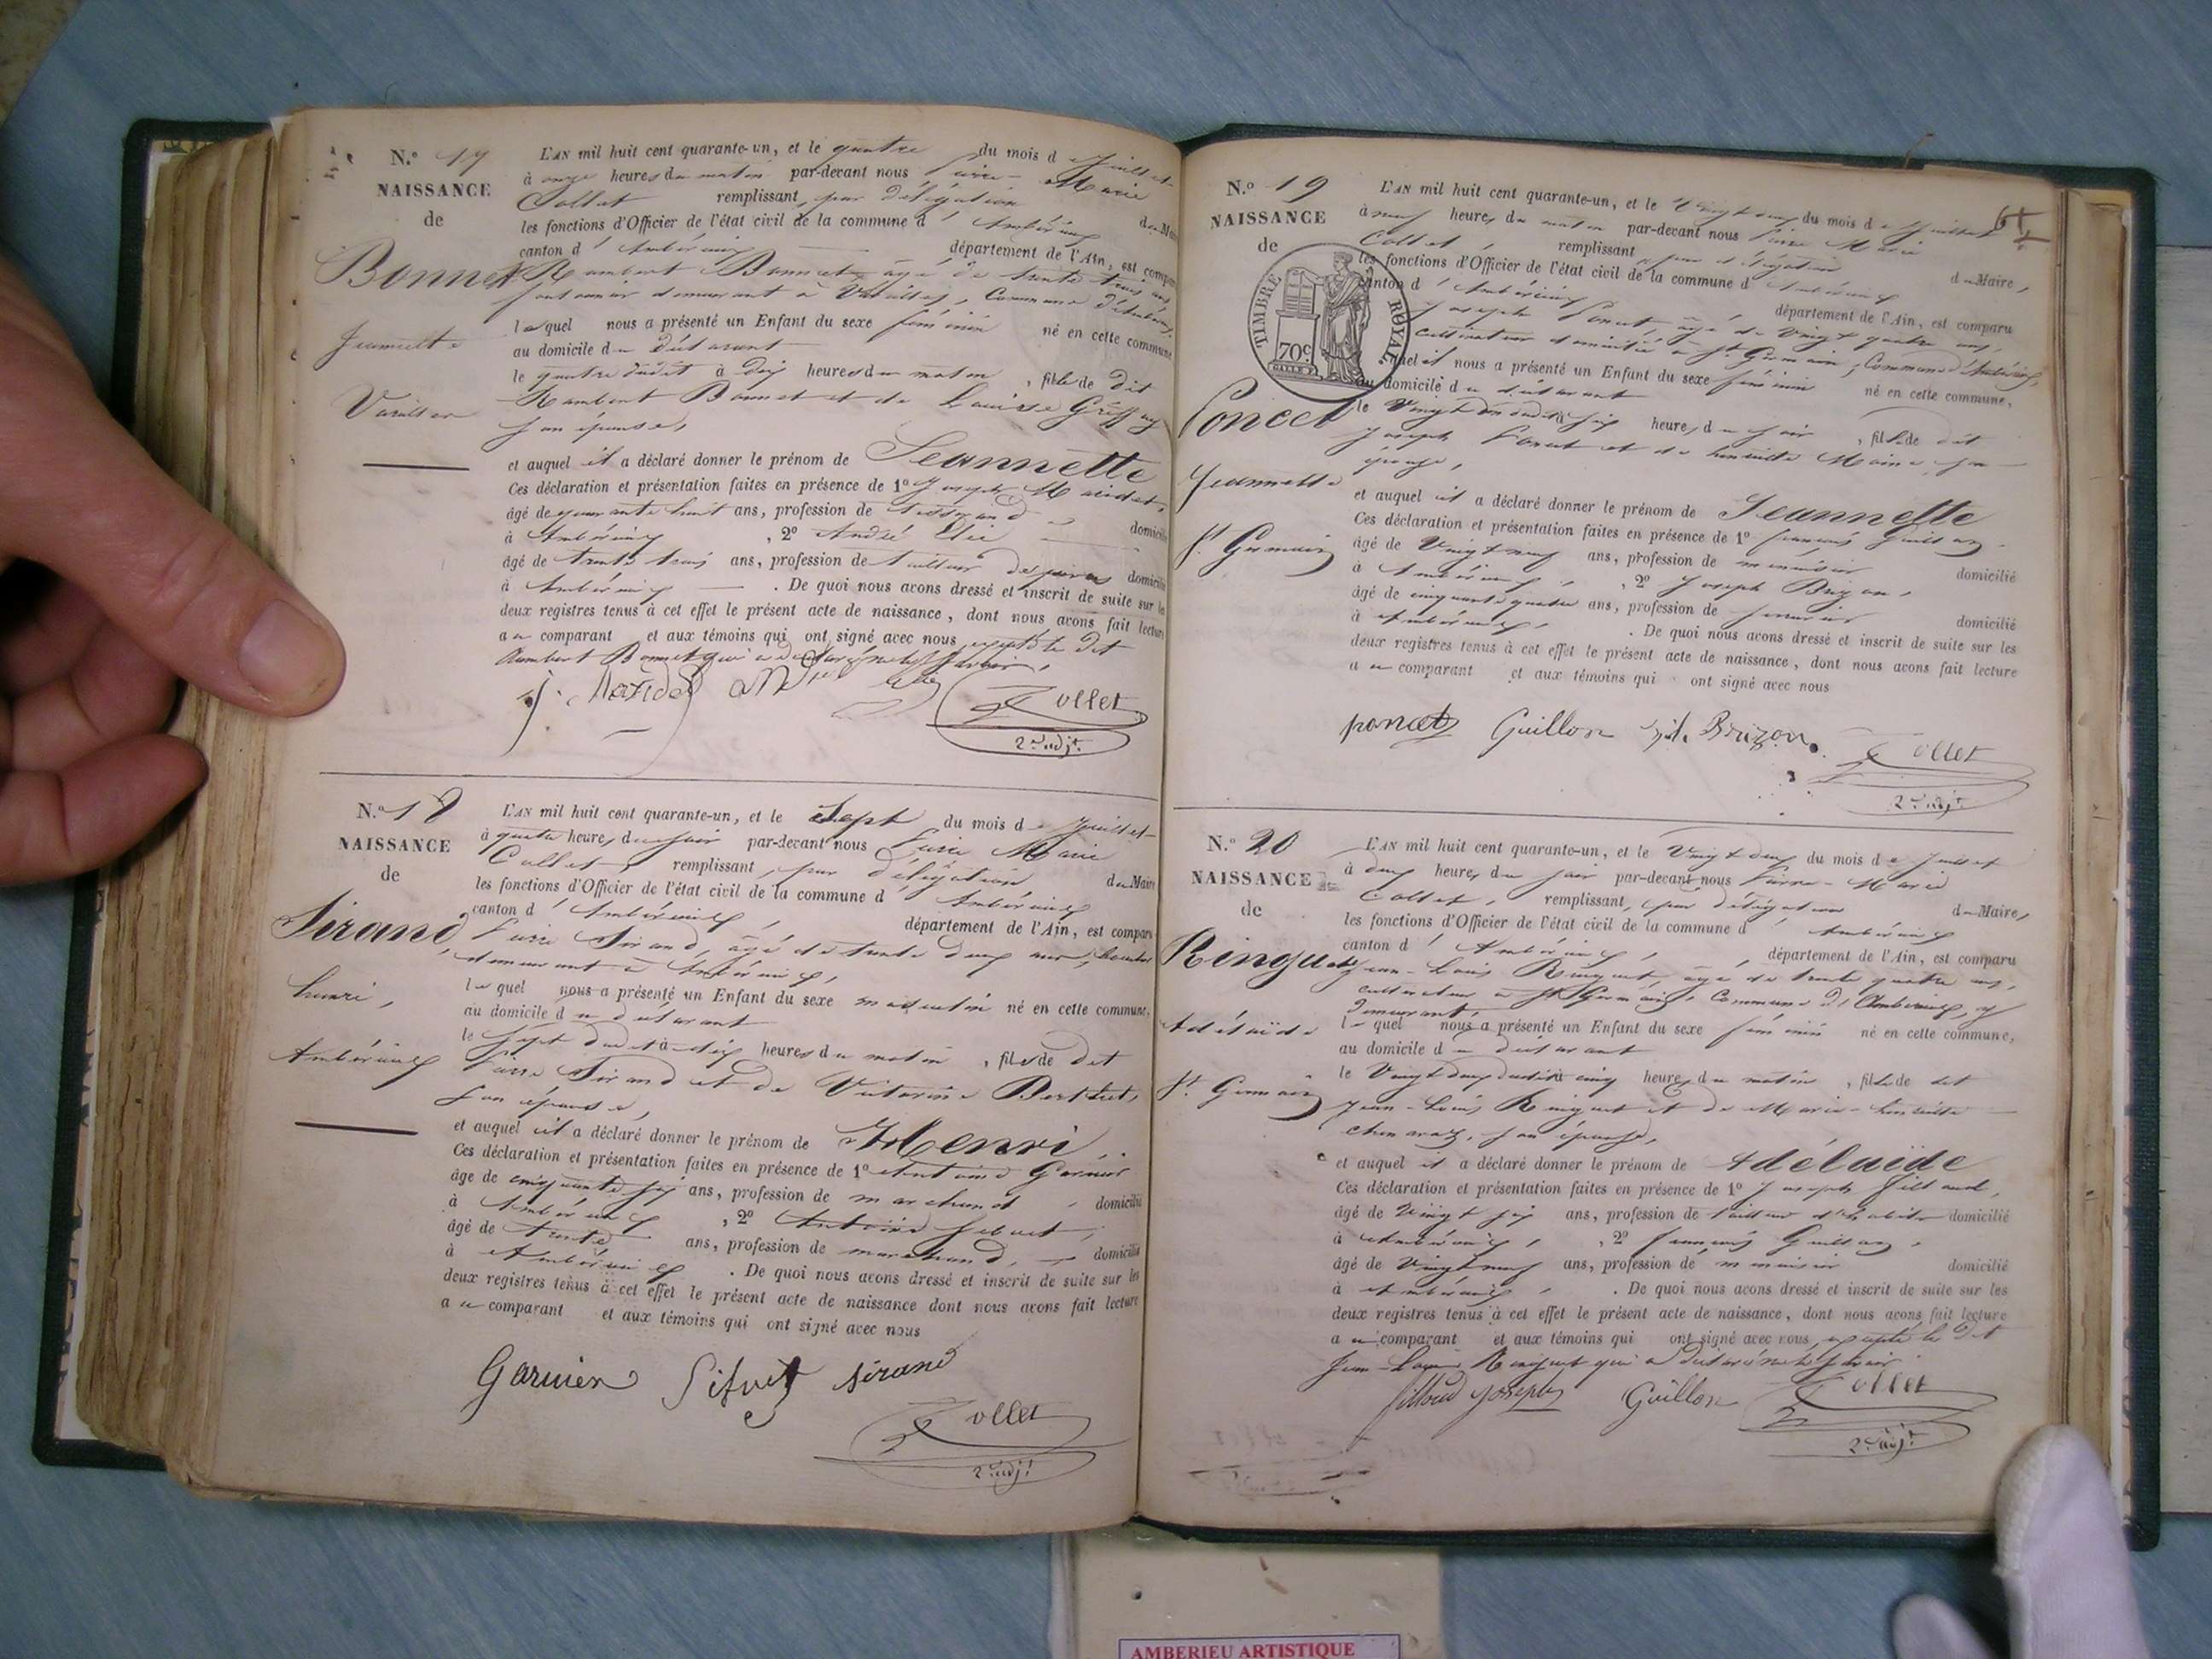 N.º 17
NAISSANCE
de
Bonnet
Jeannette
Vareilles
L'AN mil huit cent quarante-un, et le quatre du mois de Juillet
à onze heures du matin par-devant nous Pierre-Marie
Collet remplissant, par délégation du Maire
les fonctions d'Officier de l'état civil de la commune d'Ambérieux
canton d'Ambérieux département de l'Ain, est comparu
Rambert Bonnet, âgé de trente trois ans,
demeurant à Vareilles, Commune d'Ambérieux
lequel nous a présenté un Enfant du sexe féminin né en cette commune
au domicile du déclarant
le quatre dudit à dix heures du matin, fille de dit
Rambert Bonnet et de Louise
son épouse,
et auquel il a déclaré donner le prénom de Jeannette
Ces déclaration et présentation faites en présence de 1º Joseph
âgé de quarante huit ans, profession de Tisserand domicilié
à Ambérieux, 2º André
âgé de trente trois ans, profession de tailleur de pierres domicilié
à Ambérieux. De quoi nous avons dressé et inscrit de suite sur les
deux registres tenus à cet effet le présent acte de naissance, dont nous avons fait lecture
au comparant et aux témoins qui ont signé avec nous excepté le dit
Rambert Bonnet qui a déclaré ne le savoir.
Collet
2me adjt.
N.º 18
NAISSANCE
de
Sirand
henri,
Ambérieux
L'AN mil huit cent quarante-un, et le Sept du mois de Juillet
à quatre heures du soir par-devant nous Pierre Marie
Collet, remplissant, par délégation du Maire
les fonctions d'Officier de l'état civil de la commune d'Ambérieux
canton d'Ambérieux, département de l'Ain, est comparu
Pierre Sirand, âgé de trente deux ans,
demeurant à Ambérieux,
lequel nous a présenté un Enfant du sexe masculin né en cette commune,
au domicile du déclarant
le Sept dudit à dix heures du matin, fils de dit
Pierre Sirand et de Victorine Berthet,
son épouse,
et auquel il a déclaré donner le prénom de Henri.
Ces déclaration et présentation faites en présence de 1º Antoine Garnier
âgé de cinquante six ans, profession de marchand, domicilié
à Ambérieux, 2º Antoine
âgé de trente ans, profession de marchand, domicilié
à Ambérieux. De quoi nous avons dressé et inscrit de suite sur les
deux registres tenus à cet effet le présent acte de naissance dont nous avons fait lecture
au comparant et aux témoins qui ont signé avec nous
Garnier sirand
Collet
2me adjt
N.º 19
NAISSANCE
de
TIMBRE ROYAL
70c
Poncet
Jeannette
St Germain
L'AN mil huit cent quarante-un, et le Vingt deux du mois de Juillet
à neuf heures du matin par-devant nous Pierre Marie
Collet, remplissant par délégation du Maire,
les fonctions d'Officier de l'état civil de la commune d'Ambérieux
canton d'Ambérieux département de l'Ain, est comparu
Joseph Poncet âgé de Vingt quatre ans,
cultivateur domicilié à St. Germain, Commune d'Ambérieux,
lequel nous a présenté un Enfant du sexe féminin né en cette commune,
au domicile du déclarant
le Vingt un dudit à six heures du soir, fille de dit
Joseph Poncet et de henriette sa
épouse,
et auquel il a déclaré donner le prénom de Jeannette
Ces déclaration et présentation faites en présence de 1º françois Guillon
âgé de Vingt neuf ans, profession de menuisier domicilié
à Ambérieux, 2º Joseph Brizon,
âgé de cinquante quatre ans, profession de domicilié
à Ambérieux, . De quoi nous avons dressé et inscrit de suite sur les
deux registres tenus à cet effet le présent acte de naissance, dont nous avons fait lecture
au comparant et aux témoins qui ont signé avec nous
poncet Guillon Brizon.
Collet
2me adjt.
N.º 20
NAISSANCE
de
Ringuet
Adélaïde
St. Germain
L'AN mil huit cent quarante-un, et le Vingt deux du mois de Juillet
à deux heures du soir par-devant nous Pierre-Marie
Collet, remplissant, par délégation du Maire,
les fonctions d'Officier de l'état civil de la commune d'Ambérieux
canton d'Ambérieux, département de l'Ain, est comparu
Jean-Louis Ringuet, âgé de trente quatre ans,
cultivateur à St. Germain, Commune d'Ambérieux, y
demeurant,
lequel nous a présenté un Enfant du sexe féminin né en cette commune,
au domicile du déclarant
le Vingt deux dudit à cinq heures du matin, fille de dit
Jean-Louis Ringuet et de Marie-henriette
son épouse,
et auquel il a déclaré donner le prénom de Adélaïde
Ces déclaration et présentation faites en présence de 1º Joseph
âgé de Vingt six ans, profession de tailleur d'habits domicilié
à Ambérieux, 2º françois Guillon,
âgé de Vingt neuf ans, profession de menuisier domicilié
à Ambérieux. De quoi nous avons dressé et inscrit de suite sur les
deux registres tenus à cet effet le présent acte de naissance, dont nous avons fait lecture
au comparant et aux témoins qui ont signé avec nous, excepté le dit
Jean-Louis Ringuet qui a déclaré ne le savoir.
Joseph Guillon
Collet
2me adjt
AMBERIEU ARTISTIQUE